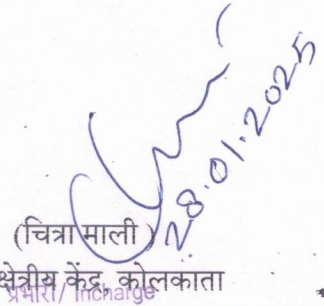 28.01.2025
(चित्रा माली)
क्षेत्रीय केंद्र, कोलकाता
प्रभारी/ Incharge